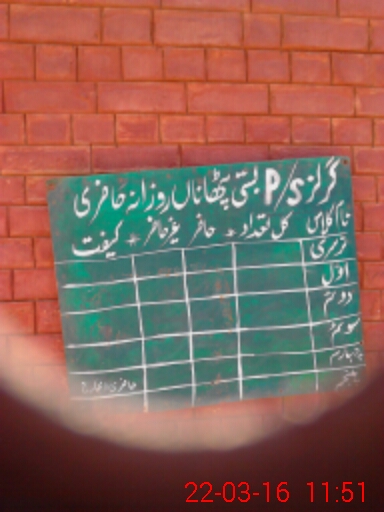 گرلز P/S بستی پٹھاناں روزانہ حاضری
نام کلاس کل تعداد * حاضر غیر حاضر * کیفیت
نرسری
اول
دوئم
سوئم
چہارم
پنجم
حاضری انچارج
22-03-16 11:51